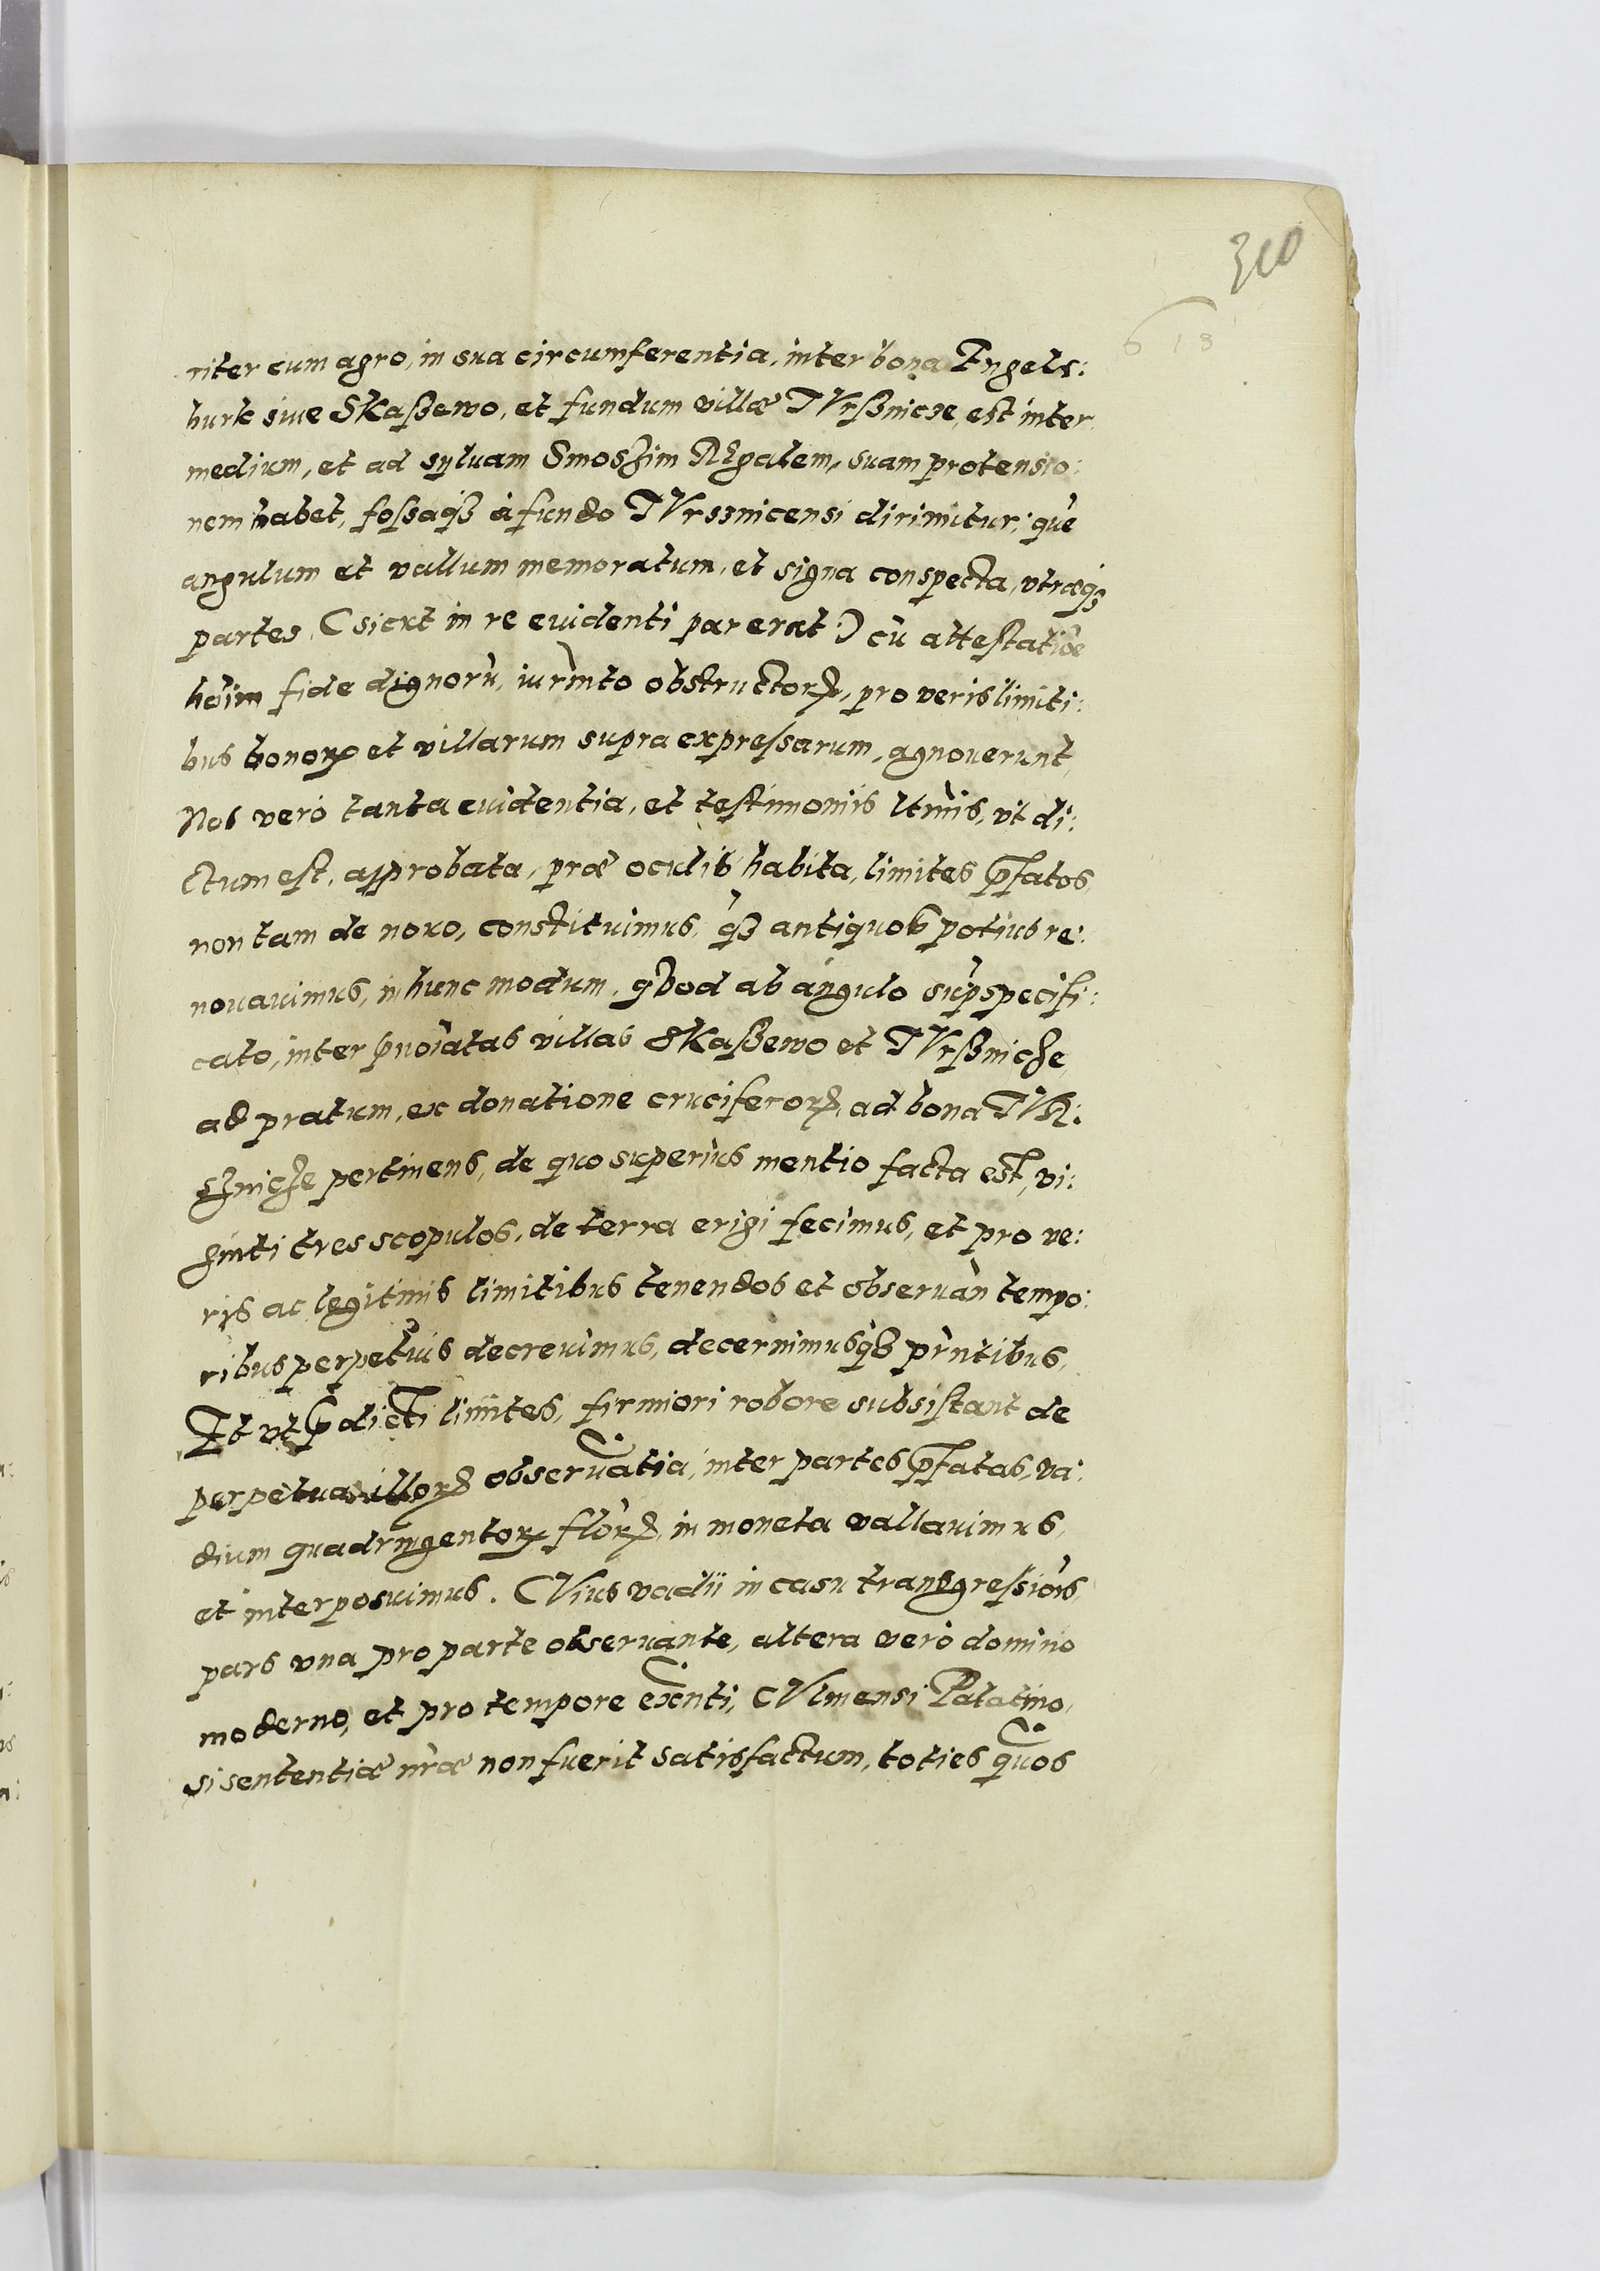 310
6 13
riter cum agro, in sua circumferentia, inter bona Engels:
burk siue Skaßewo, et fundum villæ TVrßnicze, est inter
medium, et ad syluam Smoszim REgalem, suam protensio:
nem habet, foßaqꝫ à fundo TVrsznicensi dirimitur; què
angulum et vallum memoratum, et signa conspecta, vtræqꝫ
partes, (sicut in re euidenti par erat:) cũ attestatiõe
hõim fide dignorũ, iurm̃to obstructorꝝ, pro veris limiti:
bus bonorꝝ et villarum supra expreßarum, agnouerunt,
Nos verò tanta euidentia, et testimoniis ltm̃is, vt di:
ctum est, approbata, præ oculis habita, limites p̃fatos,
non tam de nouo, constituimus, qꝫ̃ antiquos potius re:
nouauimus, in hunc modum, qVod ab angulo sup̃specifi:
cato, inter p̃noĩatas villas Skaßewo et TVrßnicze,
ad pratum, ex donatione cruciferorꝝ, ad bona TVR:
sznicze pertinens, de quo superius mentio facta est, vi:
ginti tres scopulos, de terra erigi fecimus, et pro ve:
ris ac legitimis limitibus tenendos et obseruan̄ tempo:
ribus perpetuis decreuimus, decernimusqꝫ pr̃ntibus,
Et vt p̃dicti limites, firmiori robore subsistant de
perpetua illorꝝ obseruãtia, inter partes p̃fatas, va:
dium quadringentorꝝ flõrꝝ, in moneta vallauimus,
et interposuimus. CVius vadii in casu transgreßiõis,
pars vna pro parte obseruante, altera verò domino
moderno, et pro tempore exñti, CVlmensi Palatino,
si sententiæ nr̃æ non fuerit satisfactum, toties quos